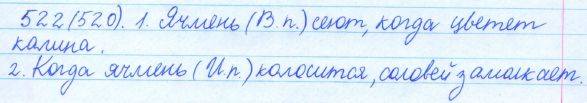 522(520). 1. Ячмень (В.п.) сеют, когда цветет
калина.
2. Когда ячмень (И.п.) колосится, соловей замолкает.